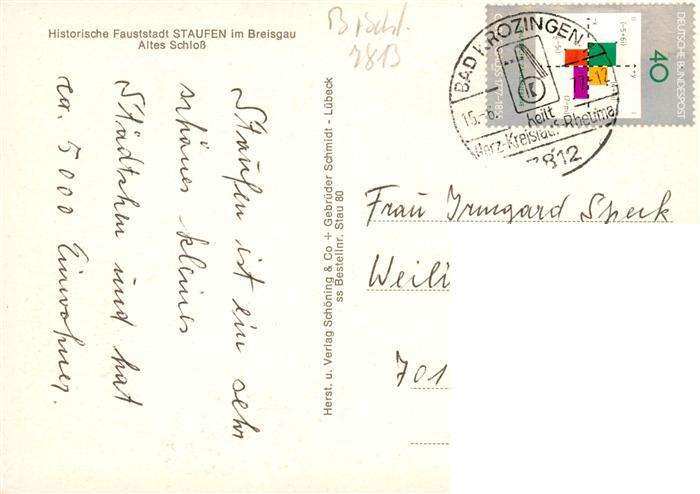 Historische Fauststadt STAUFEN im Breisgau
Altes Schloß
Staufen ist ein sehr
schönes kleines
Städtchen und hat
ca. 5000 Einwohner.
Herst. u. Verlag Schöning & Co + Gebrüder Schmidt - Lübeck
ss Bestellnr. Stau 80
7813
DEUTSCHE BUNDESPOST
40
BAD KROZINGEN
15.-6.
heilt
Herz-Kreislauf-Rheuma
7812
Frau Irmgard Speck
Weili
701